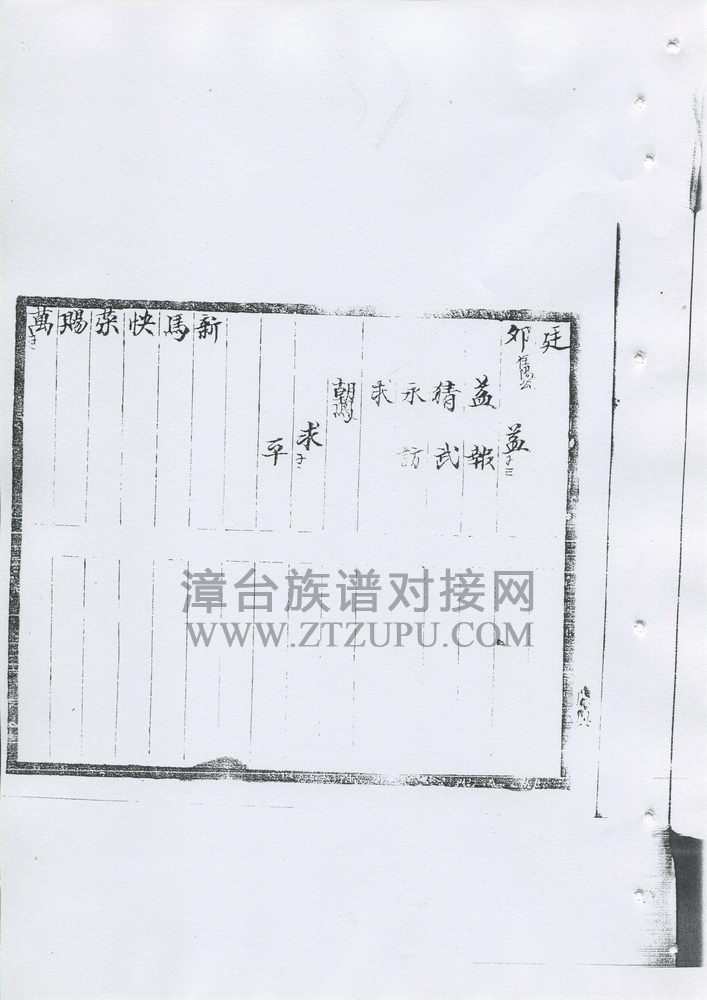 廷
益 子三
益 報
猜 武
永 訪
求
朝
求 子
平
新
馬
快
榮
賜
萬
漳台族谱对接网
WWW.ZTZUPU.COM